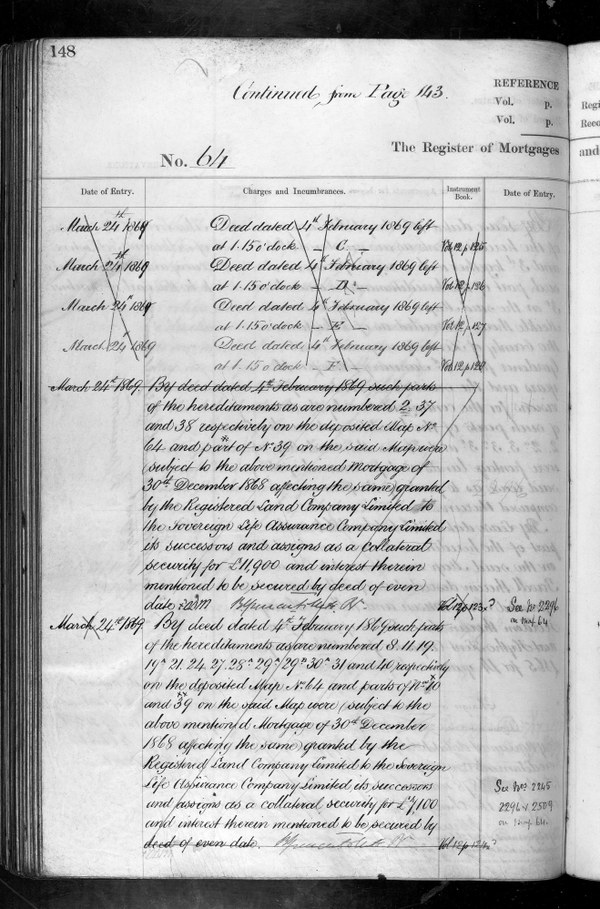 148
Continued from Page 143.
REFERENCE
Vol. p.
Vol. p.
The Register of Mortgages
and
No. 64
Date of Entry.
Charges and Incumbrances.
Instrument Book.
Date of Entry.
March 24th 1869 Deed dated 4th February 1869 left
at 1.15 o'clock — C — Vol 12 p 125
March 24th 1869 Deed dated 4th February 1869 left
at 1.15 o'clock — D — Vol 12 p 126
March 24th 1869 Deed dated 4th February 1869 left
at 1.15 o'clock — E — Vol 12 p 127
March 24th 1869 Deed dated 4th February 1869 left
at 1.15 o'clock — F — Vol 12 p 128
March 24th 1869. By deed dated 4th February 1869 such parts
of the hereditaments as are numbered 2. 37
and 38 respectively on the deposited Map No
64 and part of No 39 on the said Map were
(subject to the above mentioned Mortgage of
30th December 1868 affecting the same) granted
by the Registered Land Company Limited to
the Sovereign Life Assurance Company Limited
its successors and assigns as a collateral
security for £11,900 and interest therein
mentioned to be secured by deed of even
date Vol 12 p 123 See No 2296
on Map 64
March 24th 1869. By deed dated 4th February 1869 such parts
of the hereditaments as are numbered 8. 11. 19.
21. 24. 27. 31 and 40 respectively
on the deposited Map No 64 and parts of Nos 10
and 39 on the said Map were (subject to the
above mentioned Mortgage of 30th December
1868 affecting the same) granted by the
Registered Land Company Limited to the Sovereign
Life Assurance Company Limited its successors
and assigns as a collateral security for £7,100
and interest therein mentioned to be secured by
deed of even date. Vol 12 p 124
See Nos 2245
2296 & 2509
on Map 64.